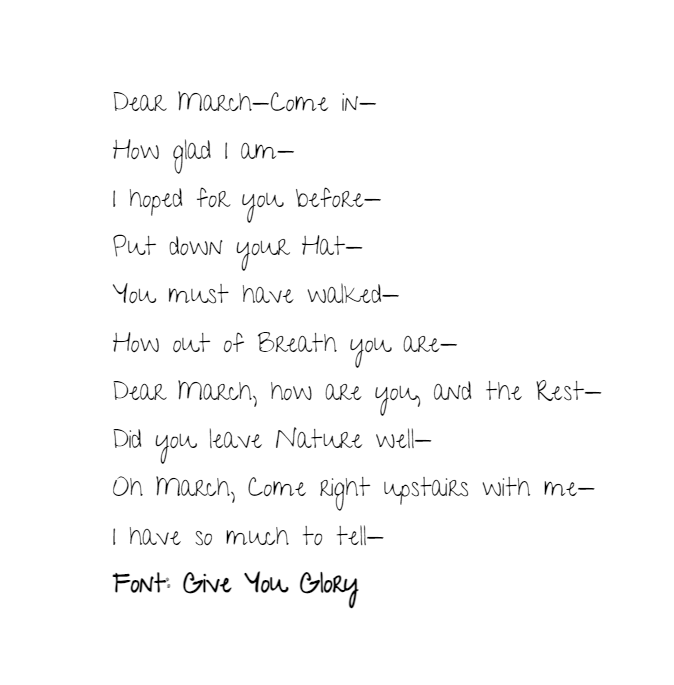 Dear March—Come in—
How glad I am—
I hoped for you before—
Put down your Hat—
You must have walked—
How out of Breath you are—
Dear March, how are you, and the Rest—
Did you leave Nature well—
Oh March, Come right upstairs with me—
I have so much to tell—
Font: Give You Glory